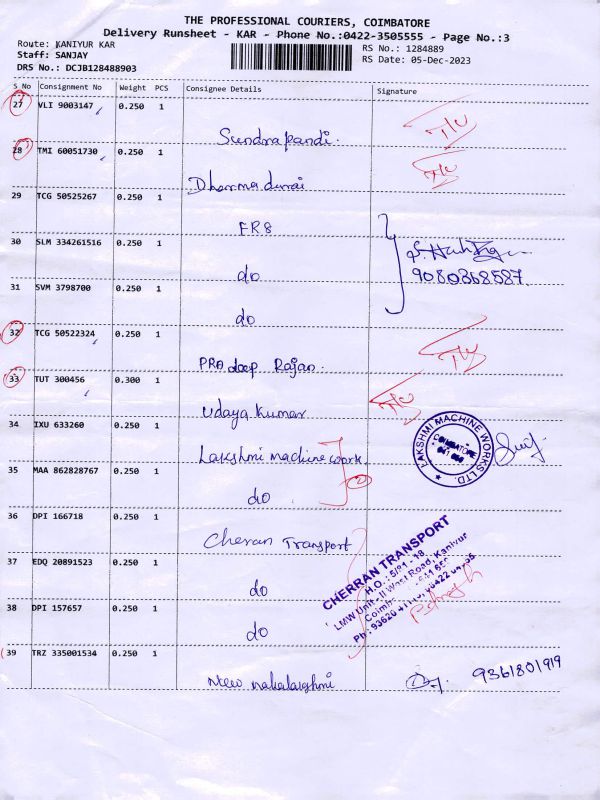 THE PROFESSIONAL COURIERS, COIMBATORE
Delivery Runsheet - KAR - Phone No.:0422-3505555 - Page No.:3
Route: KANIYUR KAR
RS No.: 1284889
Staff: SANJAY
RS Date: 05-Dec-2023
DRS No.: DCJB128488903
S No Consignment No Weight PCS Consignee Details Signature
27 VLI 9003147 0.250 1
Sundrapandi.
28 TMI 60051730 0.250 1
Dharma durai
29 TCG 50525267 0.250 1
FR8
30 SLM 334261516 0.250 1
do
9080368587
31 SVM 3798700 0.250 1
do
32 TCG 50522324 0.250 1
PRAdeep Rajan.
33 TUT 300456 0.300 1
Udaya kumar
34 IXU 633260 0.250 1
Lakshmi machine work
LAKSHMI MACHINE WORKS LTD.
COIMBATORE
35 MAA 862828767 0.250 1
do
36 DPI 166718 0.250 1
Cheran Transport
CHERRAN TRANSPORT
H.O.: 5/91 - 18,
LMW Unit - II West Road, Kaniyur
37 EDQ 20891523 0.250 1
do
38 DPI 157657 0.250 1
do
39 TRZ 335001534 0.250 1
New mahalakshmi
9361801919